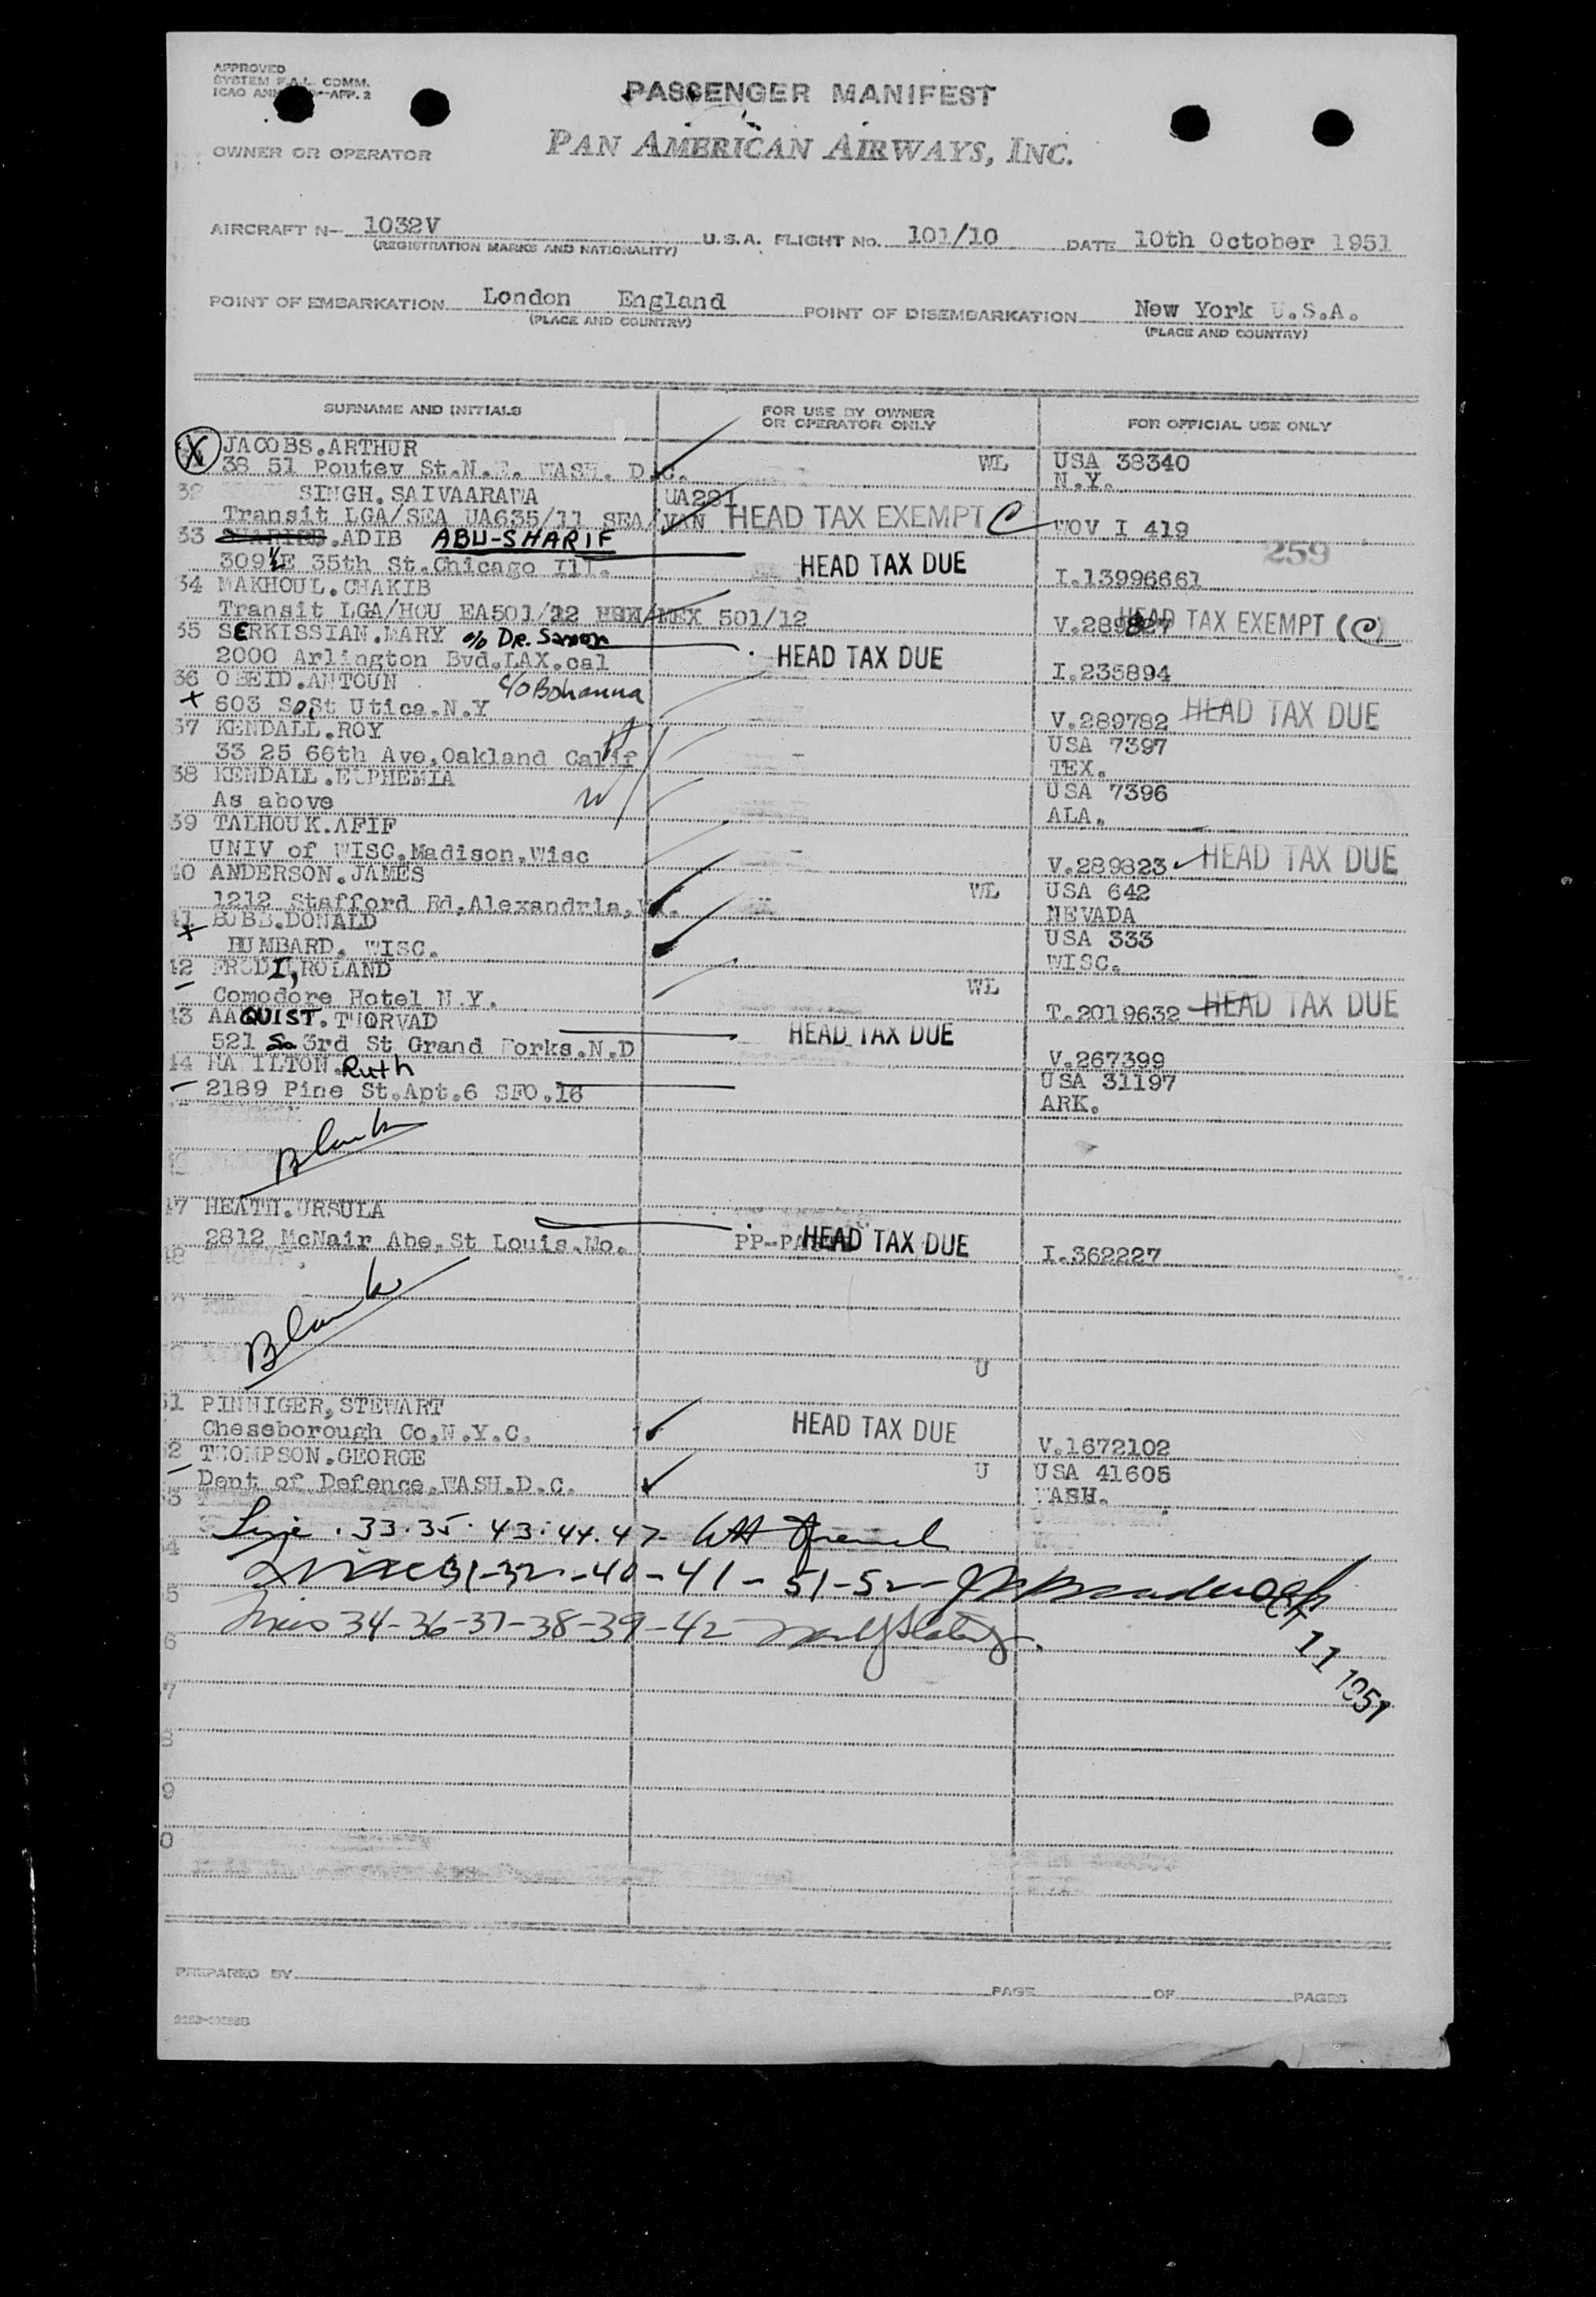 APPROVED
SYSTEM F.A.L. COMM.
ICAO APP. 2
PASSENGER MANIFEST
OWNER OR OPERATOR PAN AMERICAN AIRWAYS, INC.
AIRCRAFT N- 1032V U.S.A. FLIGHT NO. 101/10 DATE 10th October 1951
(REGISTRATION MARKS AND NATIONALITY)
POINT OF EMBARKATION London England POINT OF DISEMBARKATION New York U.S.A.
(PLACE AND COUNTRY) (PLACE AND COUNTRY)
SURNAME AND INITIALS FOR USE BY OWNER OR OPERATOR ONLY FOR OFFICIAL USE ONLY
X JACOBS.ARTHUR USA 38340
38 51 Poutey St.N.E. WASH. D.C. WL N.Y.
32 SINGH.SAIVAARAWA UA281
Transit LGA/SEA UA635/11 SEA/VAN HEAD TAX EXEMPT C WOV I 419
33 .ADIB ABU-SHARIF 259
309½E 35th St.Chicago Ill. HEAD TAX DUE I.13996661
34 MAKHOUL.CHAKIB
Transit LGA/HOU EA501/12 /MEX 501/12 V.289827 HEAD TAX EXEMPT (C)
35 SERKISSIAN.MARY c/o DR. Saxon
2000 Arlington Bvd.LAX.cal HEAD TAX DUE I.235894
36 OBEID.ANTOUN c/o Bohanna
+ 603 So.St Utica.N.Y V.289782 HEAD TAX DUE
37 KENDALL.ROY USA 7397
33 25 66th Ave,Oakland Calif TEX.
38 KENDALL.EUPHEMIA USA 7396
As above ALA.
39 TALHOUK.AFIF
UNIV of WISC.Madison.Wisc V.289823 HEAD TAX DUE
40 ANDERSON.JAMES WL USA 642
1212 Stafford Rd.Alexandria, NEVADA
41 BUBB.DONALD USA 333
+ HUMBARD. WISC. WISC.
42 FRODI,ROLAND
Comodore Hotel N.Y. WL T.2019632 HEAD TAX DUE
43 AAQUIST.THORVAD
521 So 3rd St Grand Forks.N.D HEAD TAX DUE V.267399
44 HAMILTON.Ruth USA 31197
2189 Pine St.Apt.6 SFO.16 ARK.
Blank
47 HEATH.URSULA
2812 McNair Abe.St Louis.Mo. HEAD TAX DUE I.362227
48
Blank
U
51 PINNIGER,STEWART
Cheseborough Co.N.Y.C. HEAD TAX DUE V.1672102
52 THOMPSON.GEORGE U USA 41605
Dept of Defence.WASH.D.C. WASH.
33·35·43·44·47
31-32-40-41-51-52-
34-36-37-38-39-42
11 1951
PREPARED BY PAGE OF PAGES